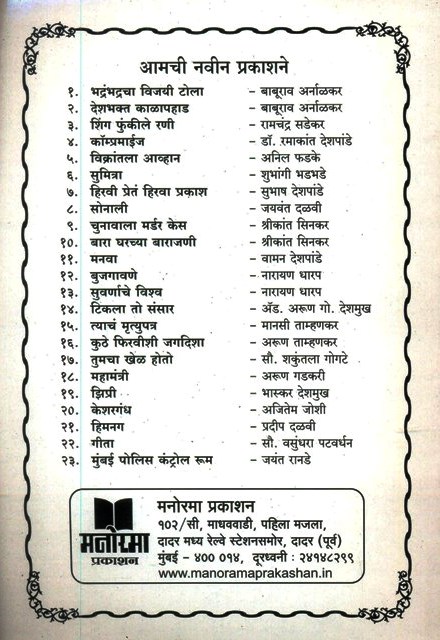 आमची नवीन प्रकाशने
१. भद्रंभद्रचा विजयी टोला - बाबूराव अर्नाळकर
२. देशभक्त काळापहाड - बाबूराव अर्नाळकर
३. शिंग फुंकीले रणी - रामचंद्र सडेकर
४. कॉम्प्रमाईज - डॉ. रमाकांत देशपांडे
५. विक्रांतला आव्हान - अनिल फडके
६. सुमित्रा - शुभांगी भडभडे
७. हिरवी प्रेतं हिरवा प्रकाश - सुभाष देशपांडे
८. सोनाली - जयवंत दळवी
९. चुनावाला मर्डर केस - श्रीकांत सिनकर
१०. बारा घरच्या बाराजणी - श्रीकांत सिनकर
११. मनवा - वामन देशपांडे
१२. बुजगावणे - नारायण धारप
१३. सुवर्णाचे विश्व - नारायण धारप
१४. टिकला तो संसार - ॲड. अरूण गो. देशमुख
१५. त्याचं मृत्युपत्र - मानसी ताम्हणकर
१६. कुठे फिरवीशी जगदिशा - अरूण ताम्हणकर
१७. तुमचा खेळ होतो - सौ. शकुंतला गोगटे
१८. महामंत्री - अरूण गडकरी
१९. झिप्री - भास्कर देशमुख
२०. केशरगंध - अजितेम जोशी
२१. हिमनग - प्रदीप दळवी
२२. गीता - सौ. वसुंधरा पटवर्धन
२३. मुंबई पोलिस कंट्रोल रूम - जयंत रानडे
मनोरमा प्रकाशन
मनोरमा प्रकाशन
१०२/सी, माधववाडी, पहिला मजला,
दादर मध्य रेल्वे स्टेशनसमोर, दादर (पूर्व)
मुंबई - ४०० ०१४, दूरध्वनी : २४१४८२९९
www.manoramaprakashan.in